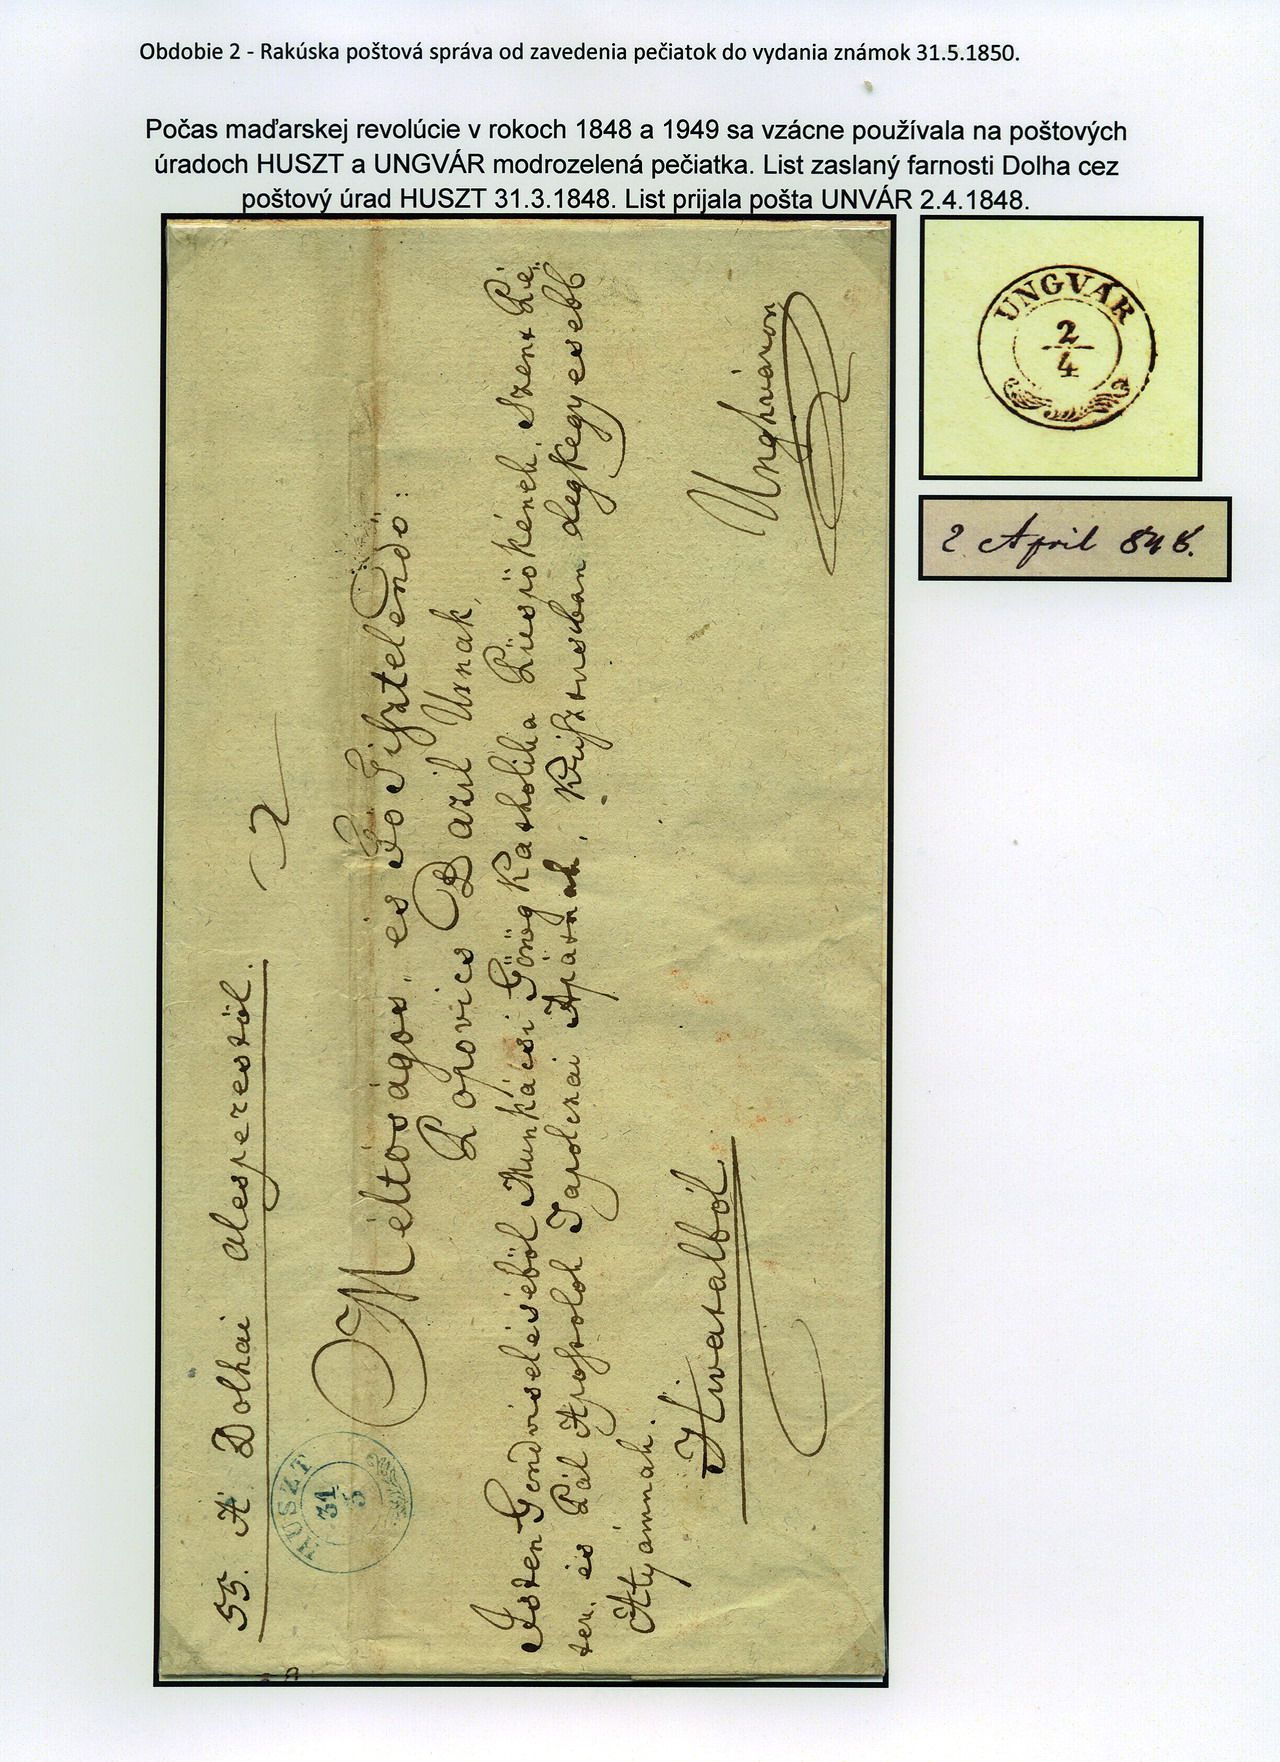 Obdobie 2 - Rakúska poštová správa od zavedenia pečiatok do vydania známok 31.5.1850.
Počas maďarskej revolúcie v rokoch 1848 a 1949 sa vzácne používala na poštových
úradoch HUSZT a UNGVÁR modrozelená pečiatka. List zaslaný farnosti Dolha cez
poštový úrad HUSZT 31.3.1848. List prijala pošta UNVÁR 2.4.1848.
55. A' Dolhai alesperestöl.
HUSZT
31
3
Méltóságos, és Fő Tisztelendő:
Popovics Bazil Urnak,
Isten Gondviseléséböl Munkácsi Görög Katholika Püspökének, Szent Pé-
ter. és Pál Apostolok Tapolczai Apátnak, Krisztusban legkegyesebb
Atyámnak.
Hivatalból.
Unghváron
UNGVÁR
2
4
2 April 848.